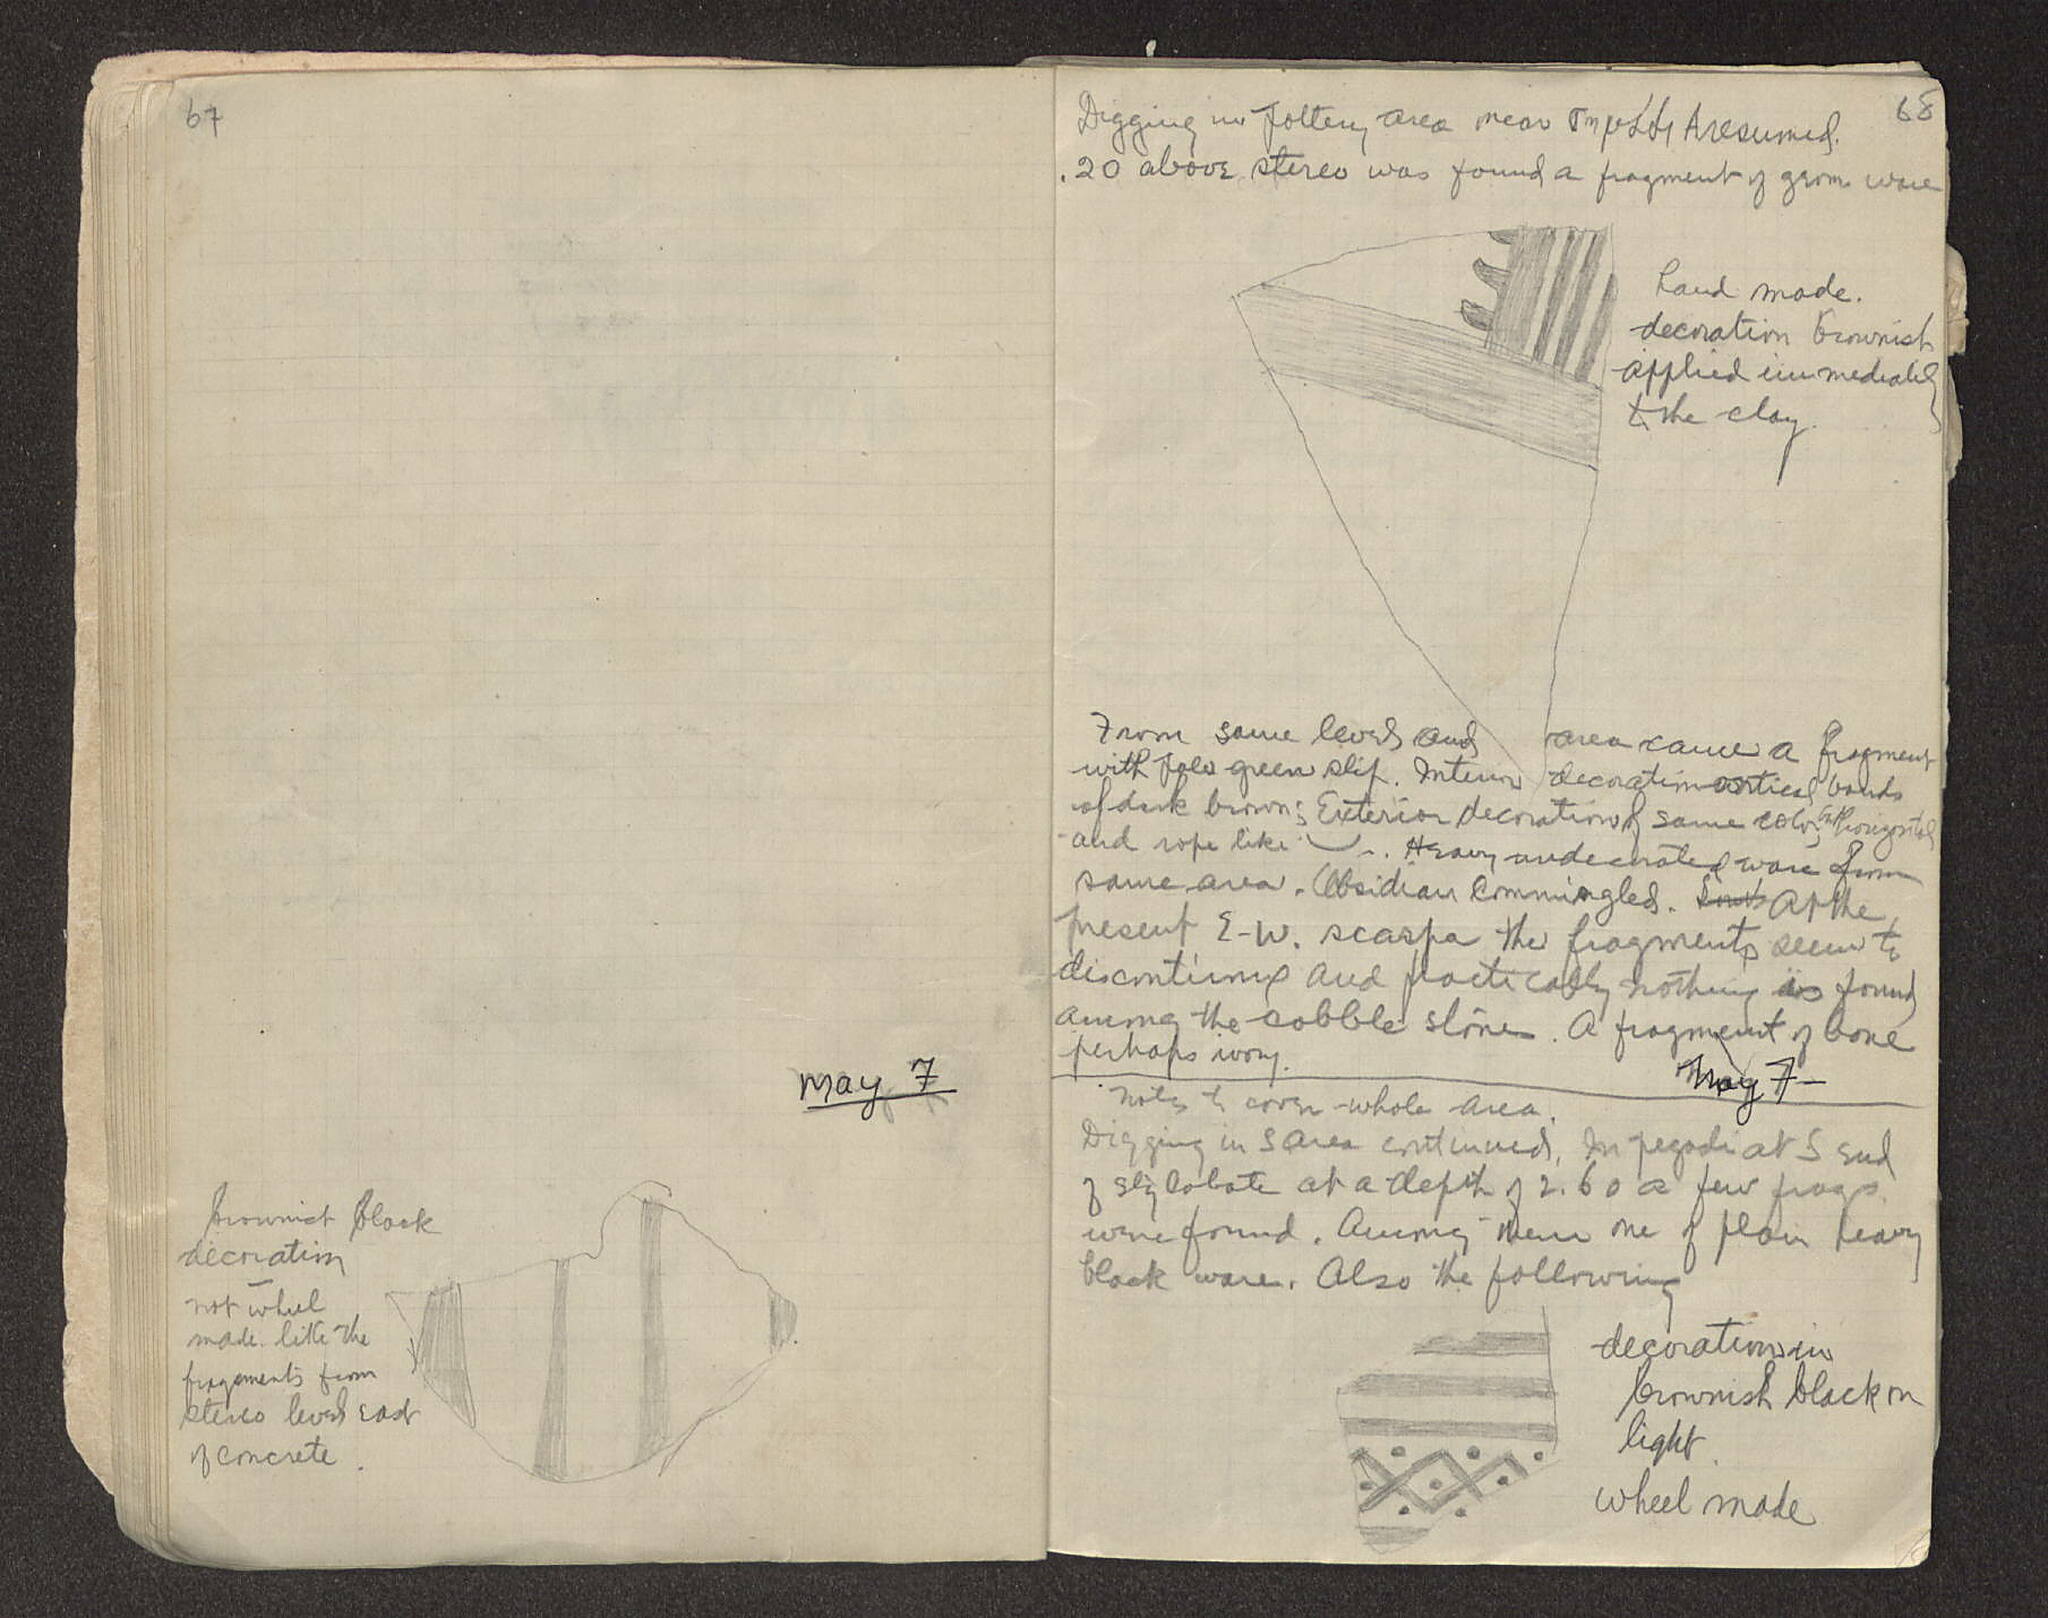 67
May 7
brownish black
decoration
not wheel
made like the
fragments from
stereo level east
of concrete.
68
Digging in pottery area near resumed.
.20 above stereo was found a fragment of ware
hand made.
decoration brownish
applied immediately
to the clay.
From same level and area came a fragment
with pale green slip. Interior decoration vertical bands
of dark brown; Exterior decoration of same color, horizontal
and rope like . Heavy undecorated ware from
same area. Obsidian commingled. At the
present E-W. scarpa the fragments seem to
discontinue and practically nothing is found
among the cobble stones. A fragment of bone
perhaps ivory.
May 7-
Notes to cover whole area.
Digging in S area continued. In pegadi at S end
of stylobate at a depth of 2.60 a few frags.
were found. Among them one of plain heavy
black ware. Also the following
decoration in
brownish black on
light.
wheel made